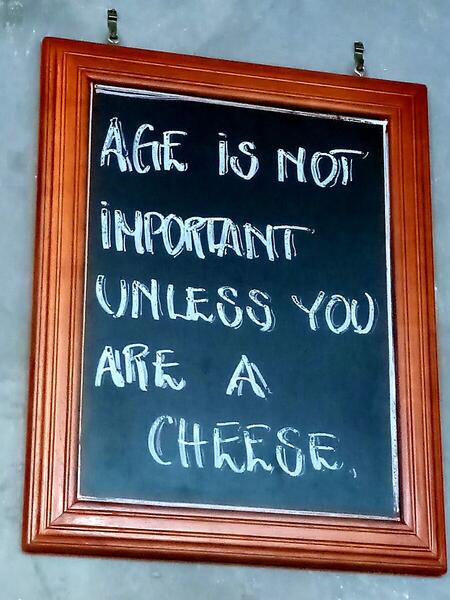 AGE iS NOT
iMPORTANT
UNLESS YOU
ARE A
CHEESE.